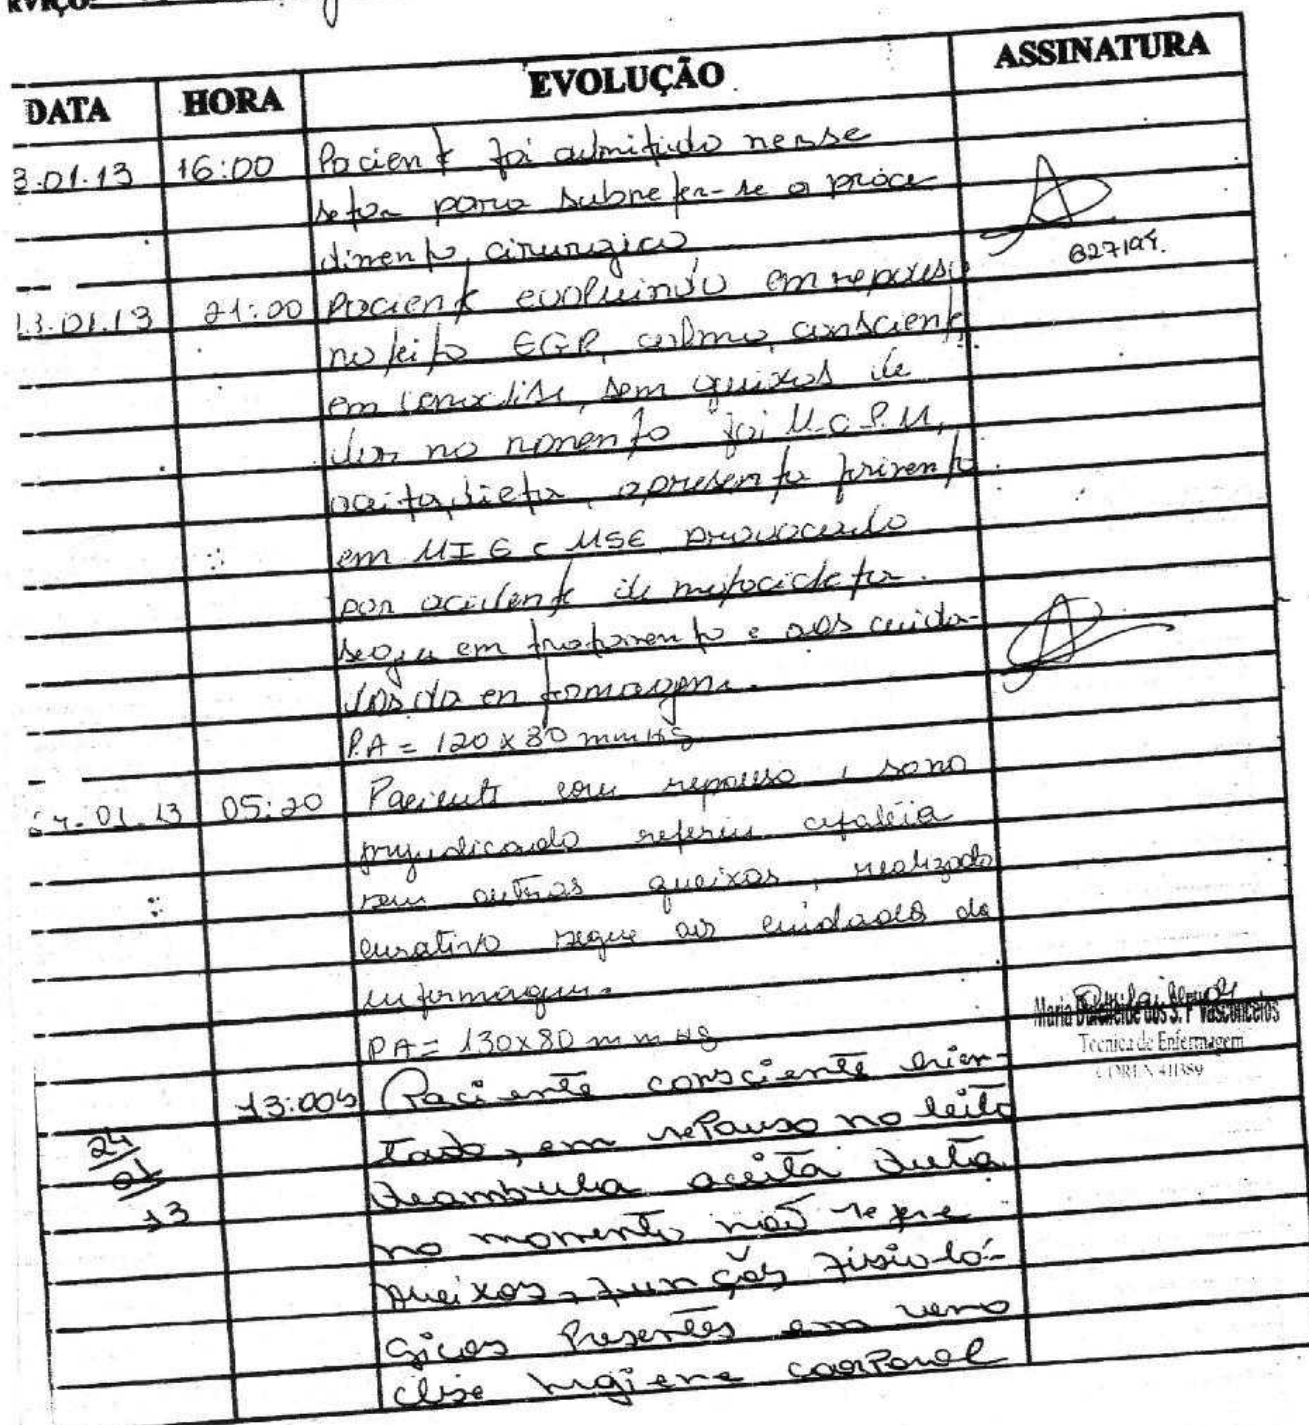 DATA HORA EVOLUÇÃO ASSINATURA
3.01.13 16:00 Pacient foi admitido nesse
setor para submeter-se a proce
dimento cirurgico
827195.
13.01.13 21:00 Pacient evoluindo em repouso
no leito EGR, calmo, conscient,
em venoclise, sem queixas de
dor no momento foi M.C.P.M,
aceita dieta, apresenta ferimento
em MIE e MSE provocado
por acident de motocicleta.
segue em tratamento e aos cuida-
dos da enfermagem.
P.A = 120 x 80 mmHg
4.01.13 05:20 Paciente com repouso e sono
prejudicado referiu cefaléia
sem outras queixas, realizado
curativo segue aos cuidados da
enfermagem.
PA = 130x80 mmHg
Maria dos S. P Vasconcelos
Tecnica de Enfermagem
COREN 411389
13:00h Paciente consciente orien-
24/01/13 tado, em repouso no leito
deambula aceita dieta
no momento não refere
queixas, funções fisioló-
gicas presentes em veno
clise higiene corporal